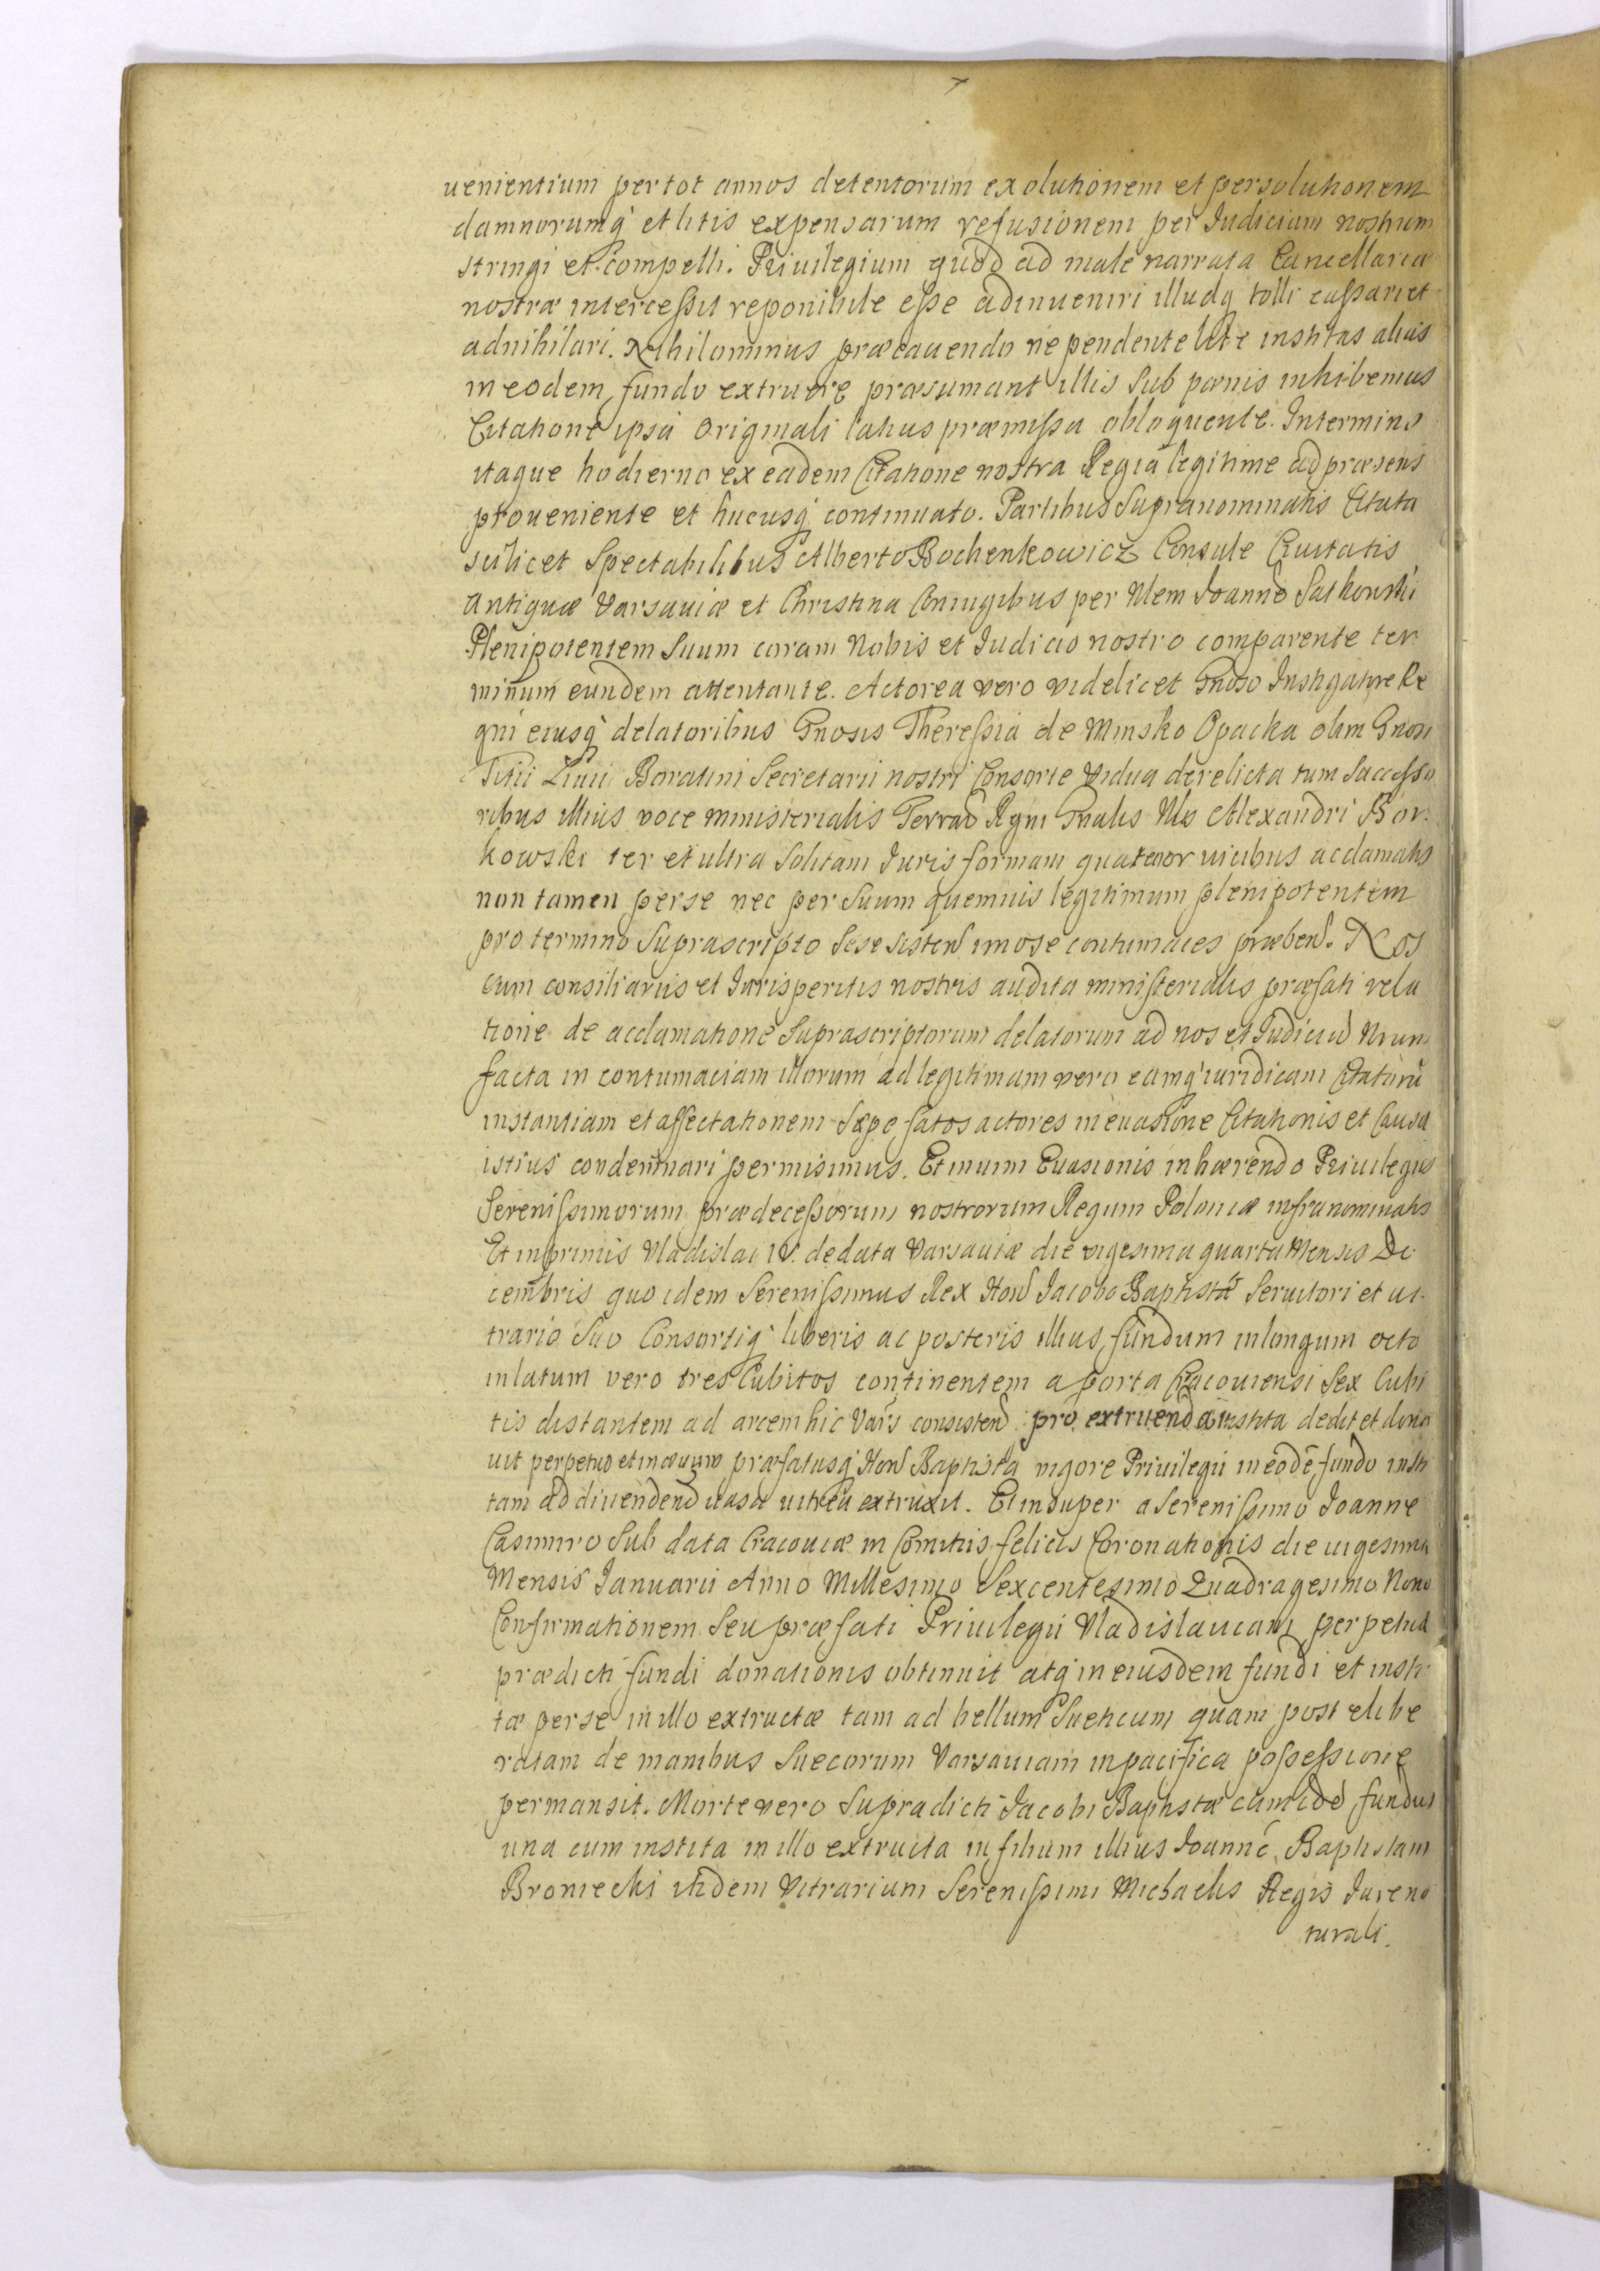 uenientium per tot annos detentorum exolutionem et persolutionem
damnorumq́ et litis expensarum refusionem per Judicium nostrum
stringi et compelli. Priuilegium quod ad male narrata Cancellariæ
nostræ intercessit reponibile esse adinueniri illudq́ tolli cassari et
adnihilari. Nihilominus præcauendo ne pendente lite institas alias
in eodem fundo extruere præsumant illis sub pænis inhibemus
Citatione ipsa Originali latius præmissa obloquente. In termino
itaque hodierno ex eadem Citatione nostra Regia legitime ad præsens
proueniente et hucusq́ continuato. Partibus supranominatis Citata
scilicet Spectabilibus Alberto Bochenkowicz Consule Ciuitatis
Antiquæ Varsauiæ et Christina Coniugibus per Nlem Joannē Satkowski
Plenipotentem suum coram Nobis et Judicio nostro comparente ter
minum eundem attentante. Actorea vero videlicet Gnoso Instigatore Re
gni eiusq́ delatoribus Gnosis Theressia de Minsko Opacka olim Gnosi
Titii Liuii Boratini Secretarii nostri Consorte vidua derelicta tum Successo
ribus illius voce ministerialis Terrarū Regni Gnalis Nlis Alexandri Bor
kowski ter et ultra solitam Juris formam quatenor uicibus acclamatis
non tamen per se nec per suum quemuis legitimum plenipotentem
pro termino suprascripto sese sisten̄ imo se contumaces præben̄. Nos
cum consiliariis et Jurisperitis nostris audita ministerialis præfati rela
tione de acclamatione suprascriptorum delatorum ad nos et Judiciū Nrum
facta in contumaciam illorum ad legitimam vero eamq́ iuridicam Citatorū
instantiam et affectationem sæpe fatos actores in euasione Citationis et Causa
istius condemnari permisimus. Et in uim Euasionis inhærendo Priuilegiis
Serenissimorum prædecessorum nostrorum Regum Poloniæ infranominatis
Et inprimis Vladislai IV. de data Varsauiæ die vigesima quarta Mensis De
cembris quo idem Serenissimus Rex Hon̄ Jacobo Baptistæ Seruitori et ui
trario suo Consortiq́ liberis ac posteris illius fundum in longum octo
in latum vero tres Cubitos continentem a porta Cracouiensi Sex Cubi
tis distantem ad arcem hic Vars consisten̄ pro extruenda instita dedit et dona
uit perpetuo et in æuum præfatusq́ Hon̄ Baptista vigore Priuilegii in eodē fundo insti
tam ad diuenden̄d uasa uitrea extruxit. Et insuper a Serenissimo Joanne
Casimiro sub data Cracouiæ in Comitiis felicis Coronationis die uigesima
Mensis Januarii Anno Millesimo Sexcentesimo Quadragesimo Nono
Confirmationem seu præfati Priuilegii Vladislauiani perpetuæ
prædicti fundi donationis obtinuit atq́ in eiusdem fundi et insti
tæ per se in illo extructæ tam ad bellum Sueticum quam post elibe
ratam de manibus Suecorum Varsauiam in pacifica possessione
permansit. Morte vero supradicti Jacobi Baptistæ cum idē fundus
una cum instita in illo extructa in filium illius Joannē Baptistam
Broniecki itidem Vitrarium Serenissimi Michaelis Regis Jure na
turali.